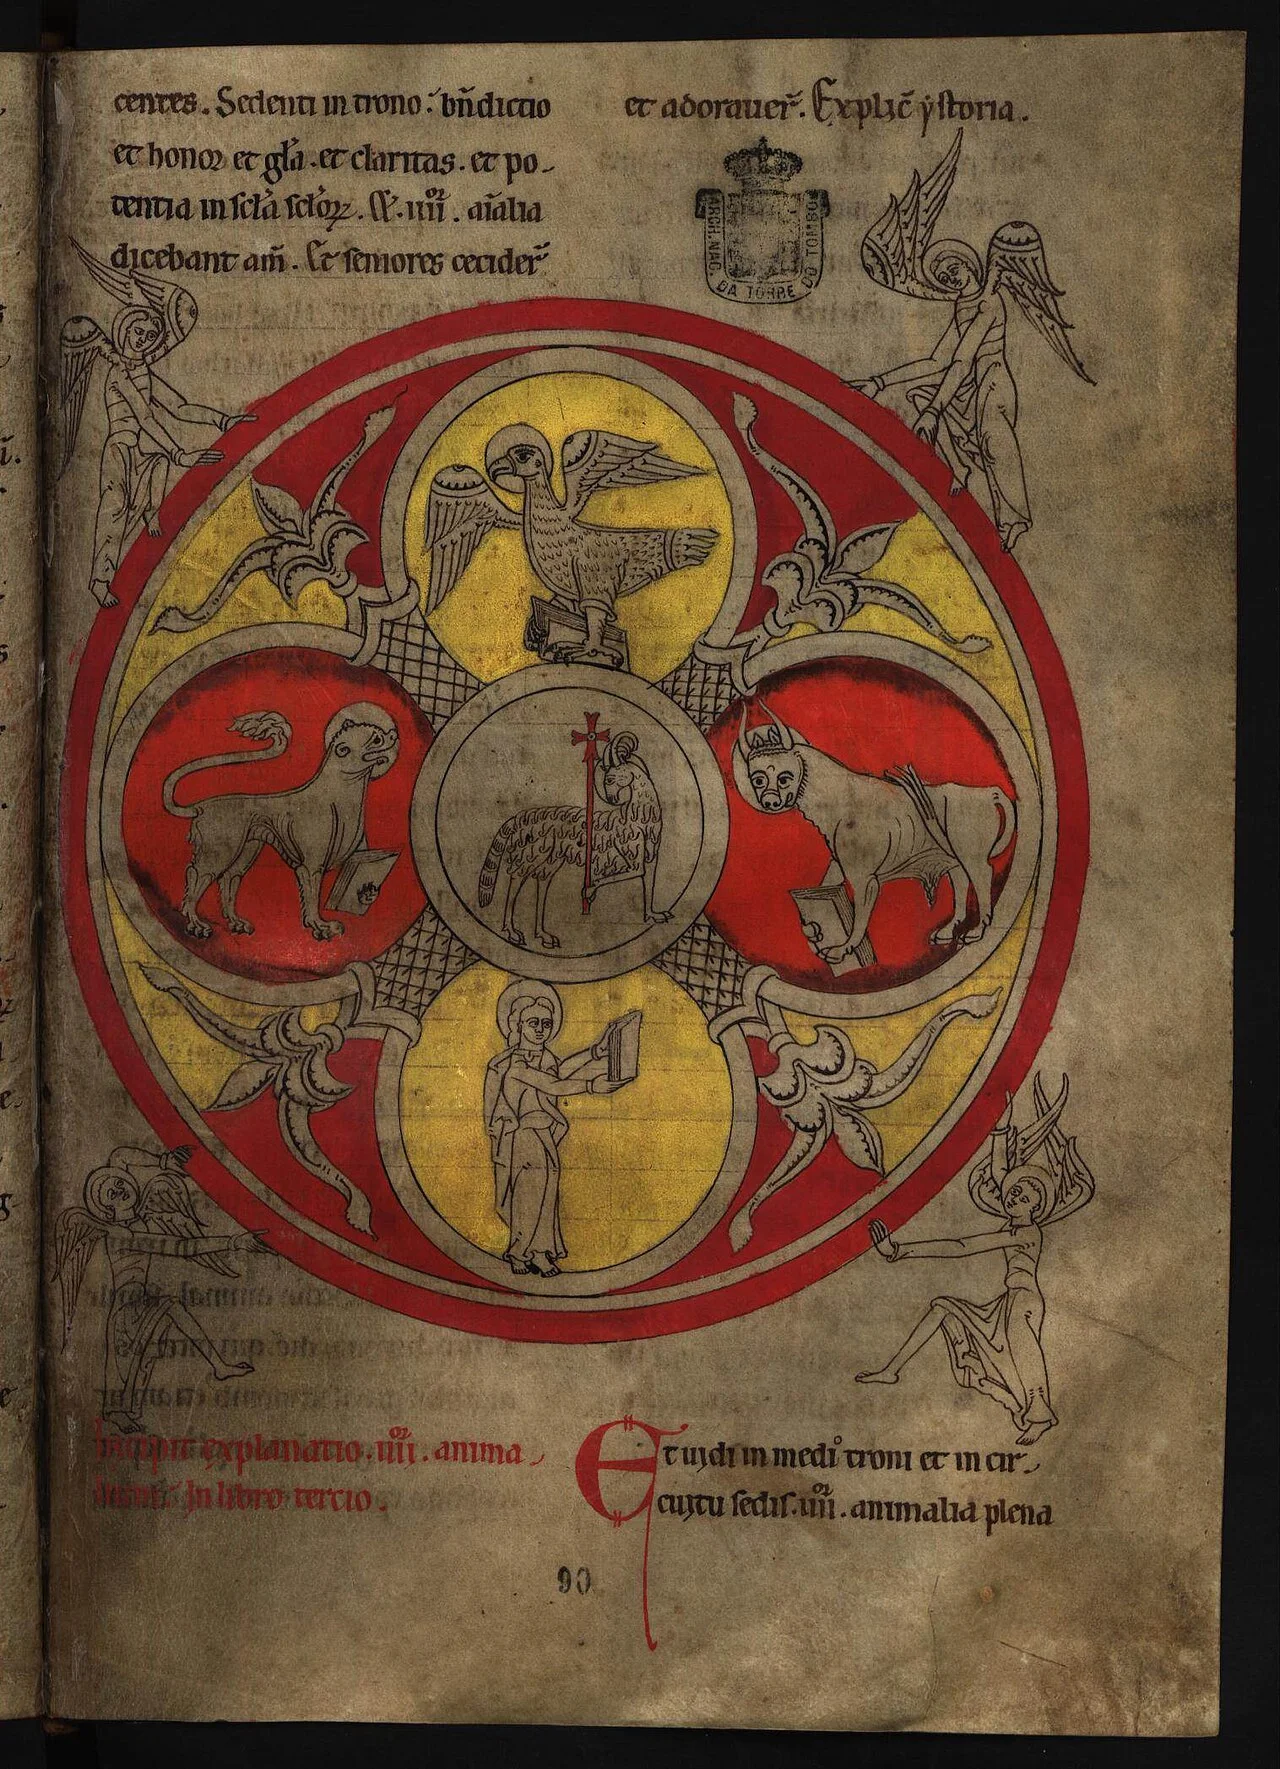 centes. Sedenti in trono. bñdictio
et honor et gl̃a. et claritas. et po-
tentia in scl̃a scl̃oꝝ. Et. iiii.or aĩalia
dicebant am̃. Et seniores cecider̃
et adorauer̃. Explic̃ ẏstoria.
ARCH. NAC. DA TORRE DO TOMBO
Incipit explanatio. iiii.or anima-
In libro tercio.
Et uidi in medio troni et in cir-
cuitu sedis. iiii.or animalia plena
90